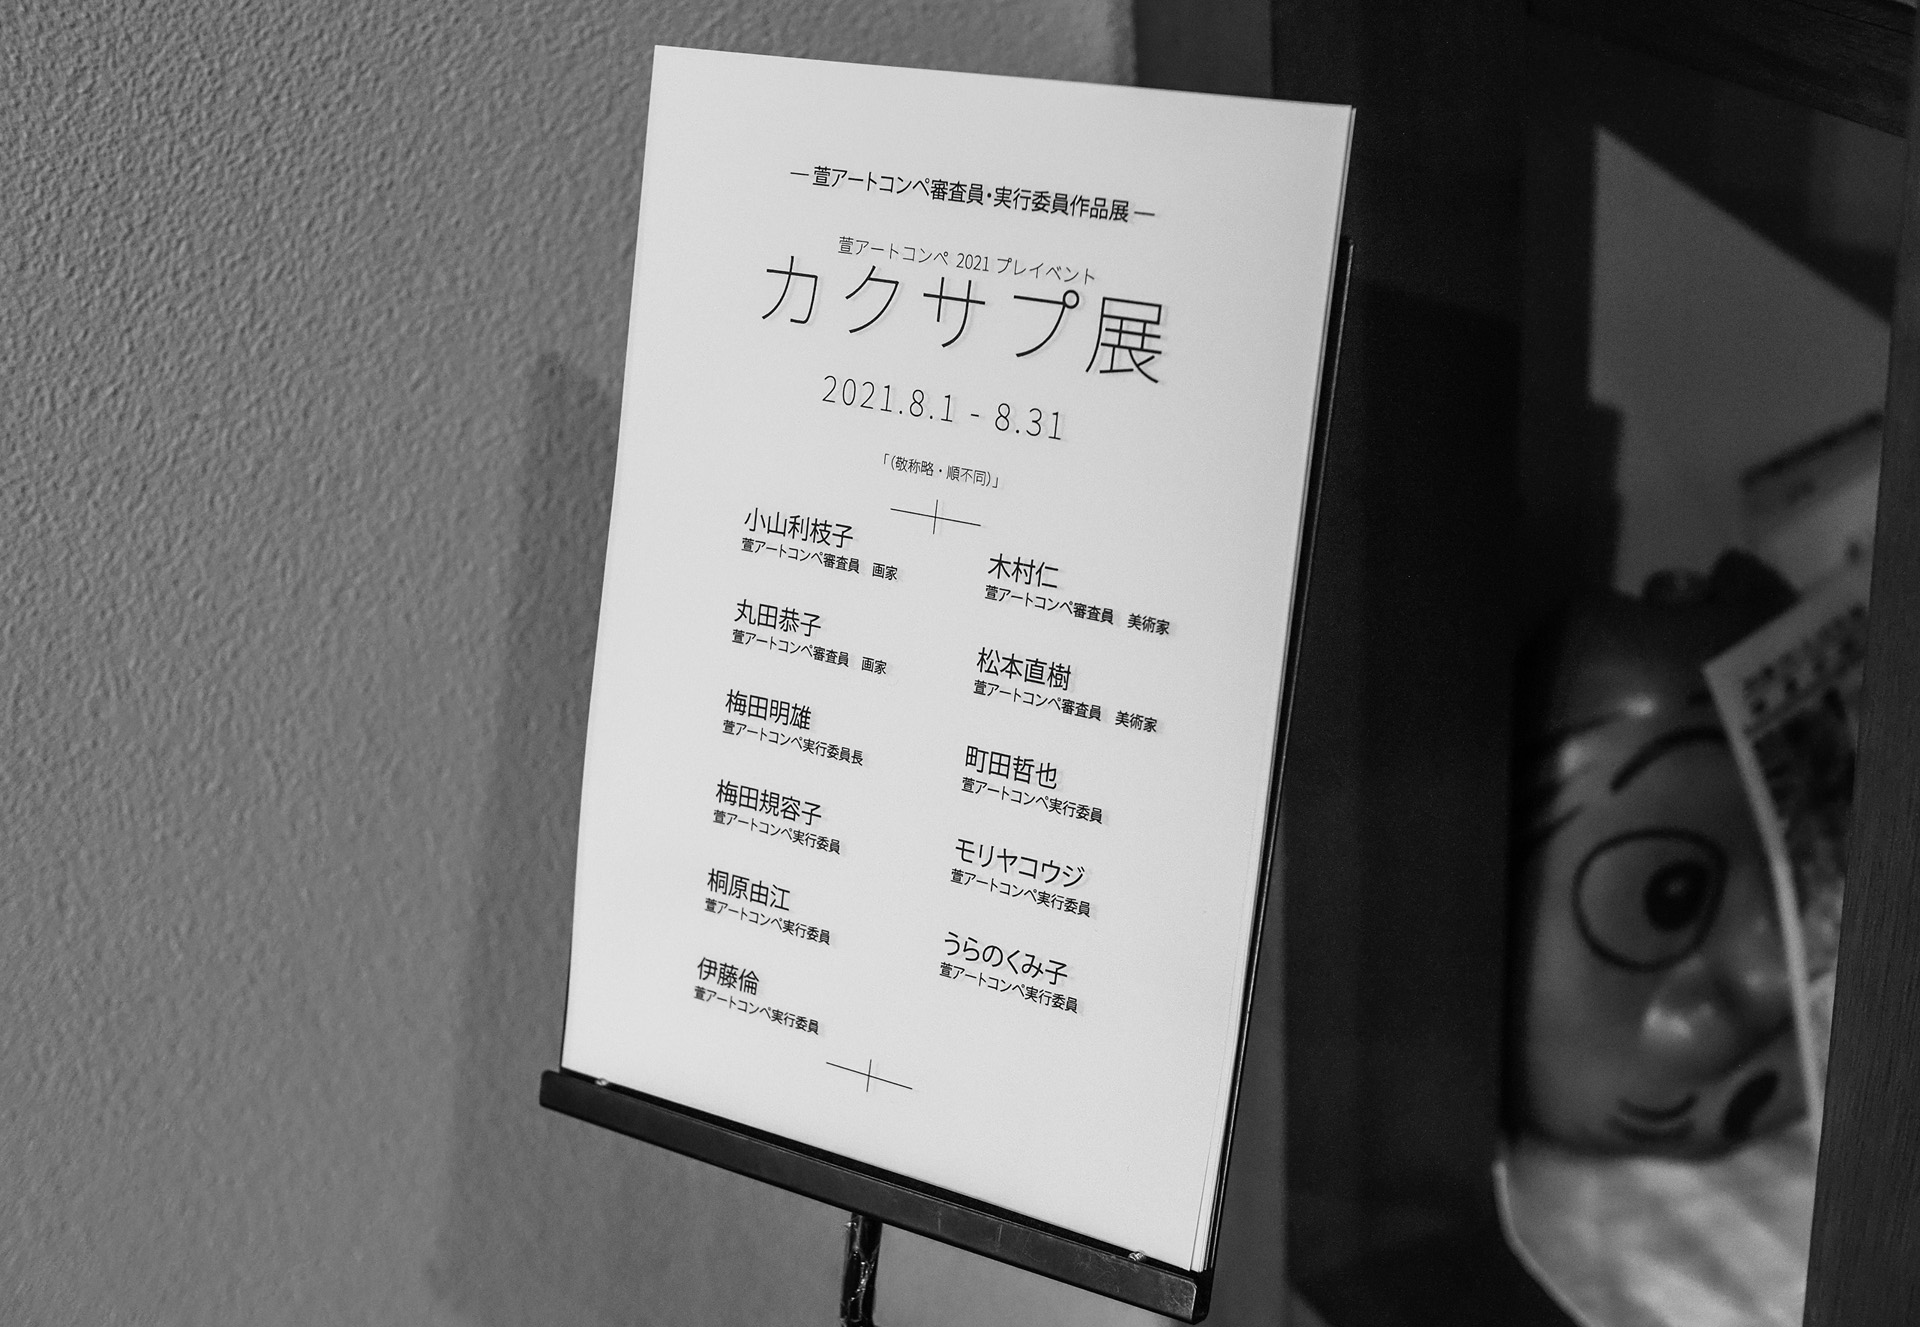 ― 萱アートコンペ審査員・実行委員作品展 ―
萱アートコンペ 2021 プレイベント
カクサプ展
2021.8.1 - 8.31
「(敬称略・順不同)」
小山利枝子
萱アートコンペ審査員　画家
丸田恭子
萱アートコンペ審査員　画家
梅田明雄
萱アートコンペ実行委員長
梅田規容子
萱アートコンペ実行委員
桐原由江
萱アートコンペ実行委員
伊藤倫
萱アートコンペ実行委員
木村仁
萱アートコンペ審査員　美術家
松本直樹
萱アートコンペ審査員　美術家
町田哲也
萱アートコンペ実行委員
モリヤコウジ
萱アートコンペ実行委員
うらのくみ子
萱アートコンペ実行委員